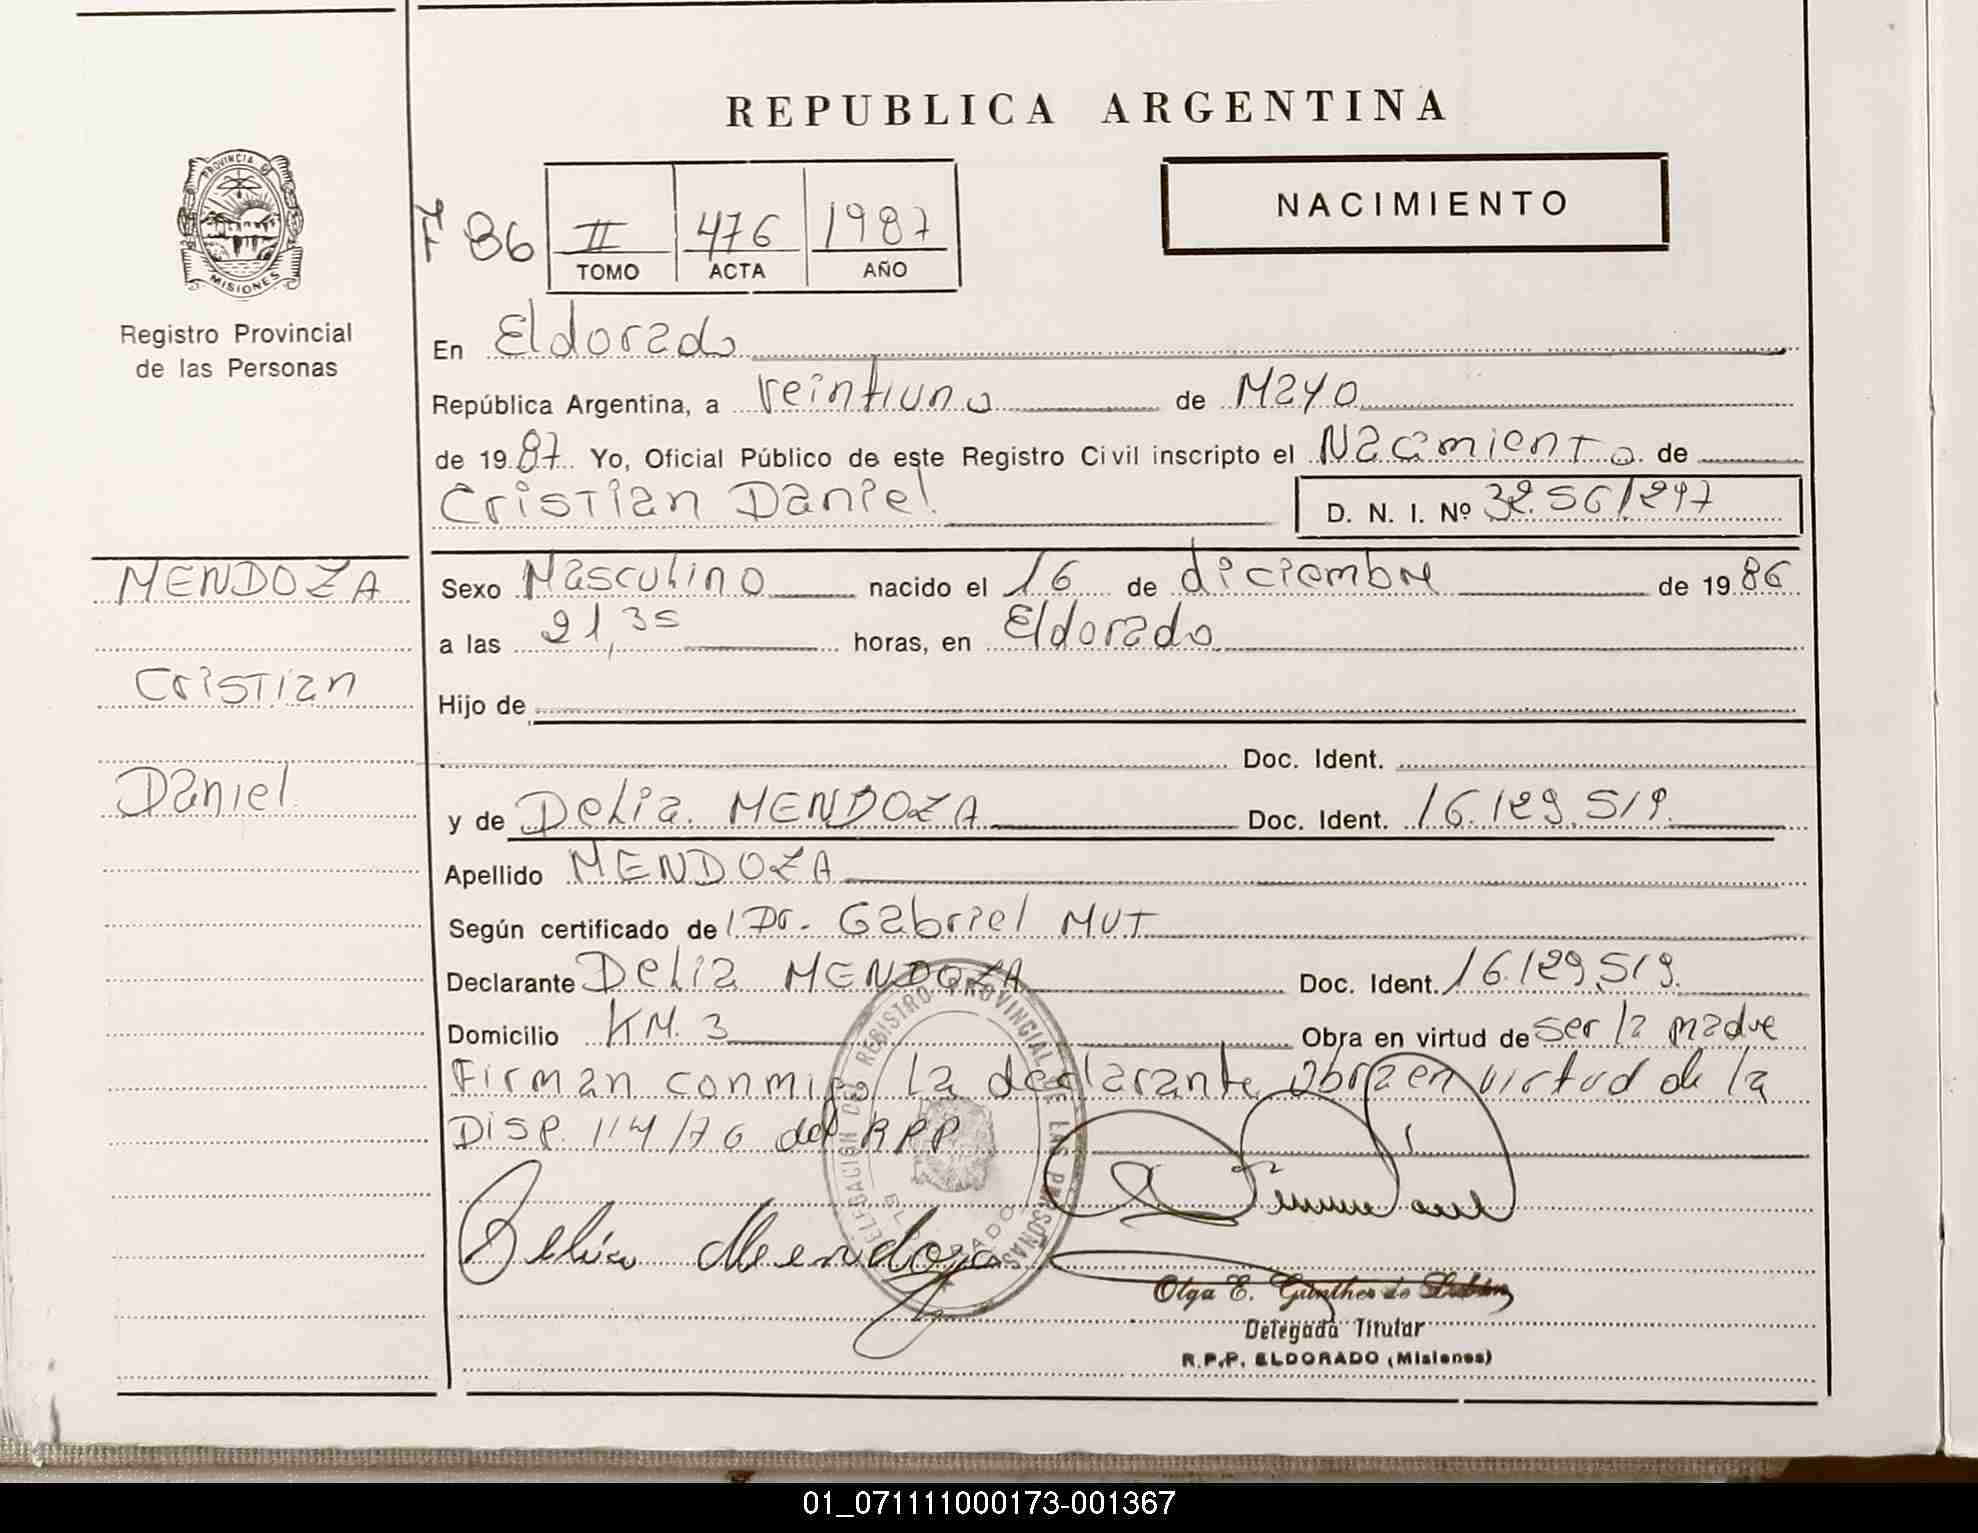 REPUBLICA ARGENTINA
PROVINCIA DE MISIONES
Registro Provincial
de las Personas
F 86
II 476 1987
TOMO ACTA AÑO
NACIMIENTO
En Eldorado
República Argentina, a veintiuno de MAYO
de 1987 Yo, Oficial Público de este Registro Civil inscripto el Nacimiento de
Cristian Daniel D. N. I. Nº 32.561297
MENDOZA
Cristian
Daniel
Sexo Masculino nacido el 16 de diciembre de 1986
a las 21,35 horas, en Eldorado
Hijo de
Doc. Ident.
y de Delia MENDOZA Doc. Ident. 16.129.519
Apellido MENDOZA
Según certificado de Dr. Gabriel MUT
Declarante Delia MENDOZA Doc. Ident. 16.129.519
Domicilio KM. 3 Obra en virtud de ser la madre
Firman conmigo la declarante obra en virtud de la
Disp. 114/76 del RPP
DELEGACION DEL REGISTRO PROVINCIAL DE LAS PERSONAS
ELDORADO
Delia Mendoza
Olga E. Günther de
Delegada Titular
R.P.P. ELDORADO (Misiones)
01_071111000173-001367